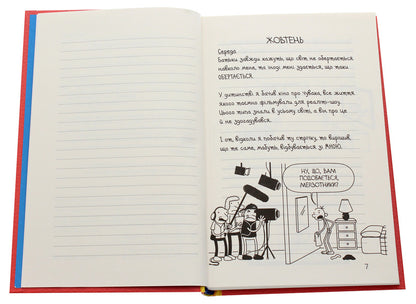 ЖОВТЕНЬ
Середа
Батьки завжди кажуть, що світ не обертається
навколо мене, та іноді мені здається, що таки
ОБЕРТАЄТЬСЯ.
У дитинстві я бачив кіно про чувака, все життя
якого таємно фільмували для реаліті-шоу.
Цього типа знали в усьому світі, а він про це
й не здогадувався.
І от, відколи я побачив ту стрічку, то вирішив,
що те саме, мабуть, відбувається зі МНОЮ.
НУ, ДО, ВАМ
ПОДОБАЄТЬСЯ,
МЕРЗОТНИКИ?
7